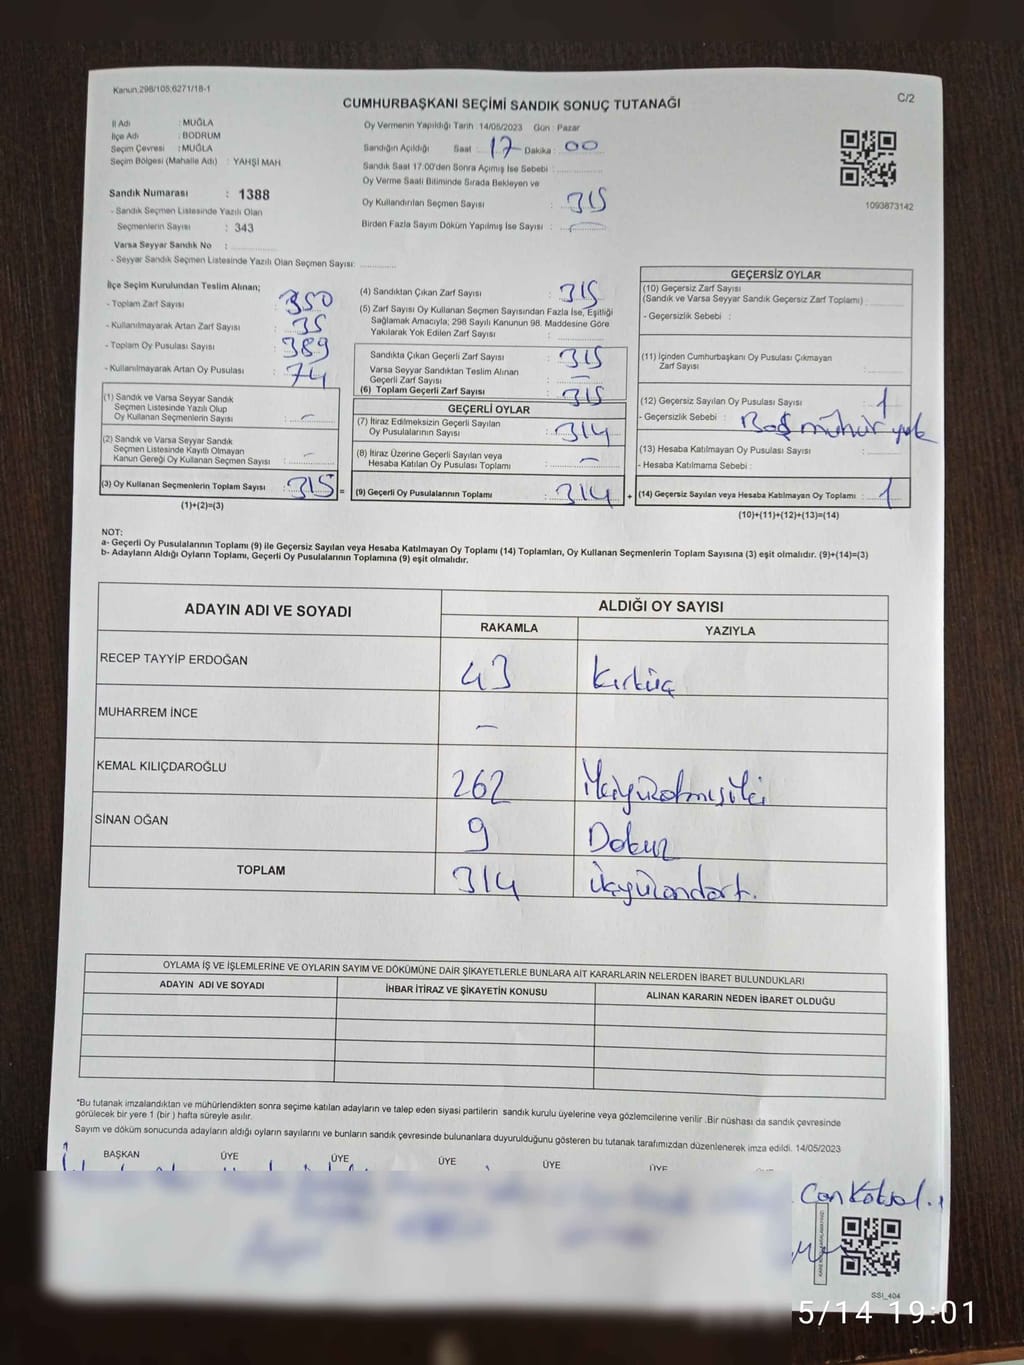 Kanun.298/105;6271/18-1
CUMHURBAŞKANI SEÇİMİ SANDIK SONUÇ TUTANAĞI
C/2
İl Adı : MUĞLA
İlçe Adı : BODRUM
Seçim Çevresi : MUĞLA
Seçim Bölgesi (Mahalle Adı) : YAHŞİ MAH
Sandık Numarası : 1388
- Sandık Seçmen Listesinde Yazılı Olan
Seçmenlerin Sayısı : 243
Varsa Seyyar Sandık No :
- Seyyar Sandık Seçmen Listesinde Yazılı Olan Seçmen Sayısı:
Oy Vermenin Yapıldığı Tarih :14/05/2023 Gün : Pazar
Sandığın Açıldığı Saat 17 Dakika : 00
Sandık Saat 17:00'den Sonra Açımış İse Sebebi :
Oy Verme Saati Bitiminde Sırada Bekleyen ve
Oy Kullandırılan Seçmen Sayısı : 315
Birden Fazla Sayım Döküm Yapılmış İse Sayısı : -
1093873142
İlçe Seçim Kurulundan Teslim Alınan;
- Toplam Zarf Sayısı : 350
- Kullanılmayarak Artan Zarf Sayısı : 35
- Toplam Oy Pusulası Sayısı : 389
- Kullanılmayarak Artan Oy Pusulası : 74
(1) Sandık ve Varsa Seyyar Sandık
Seçmen Listesinde Yazılı Olup
Oy Kullanan Seçmenlerin Sayısı : -
(2) Sandık ve Varsa Seyyar Sandık
Seçmen Listesinde Kayıtlı Olmayan
Kanun Gereği Oy Kullanan Seçmen Sayısı : -
(3) Oy Kullanan Seçmenlerin Toplam Sayısı : 315 =
(1)+(2)=(3)
(4) Sandıktan Çıkan Zarf Sayısı : 315
(5) Zarf Sayısı Oy Kullanan Seçmen Sayısından Fazla İse, Eşitliği
Sağlamak Amacıyla; 298 Sayılı Kanunun 98. Maddesine Göre
Yakılarak Yok Edilen Zarf Sayısı :
Sandıkta Çıkan Geçerli Zarf Sayısı : 315
Varsa Seyyar Sandıktan Teslim Alınan
Geçerli Zarf Sayısı : -
(6) Toplam Geçerli Zarf Sayısı : 315
GEÇERLİ OYLAR
(7) İtiraz Edilmeksizin Geçerli Sayılan
Oy Pusulalarının Sayısı : 314
(8) İtiraz Üzerine Geçerli Sayılan veya
Hesaba Katılan Oy Pusulası Toplamı : -
(9) Geçerli Oy Pusulalarının Toplamı : 314 +
GEÇERSİZ OYLAR
(10) Geçersiz Zarf Sayısı
(Sandık ve Varsa Seyyar Sandık Geçersiz Zarf Toplamı) :
- Geçersizlik Sebebi :
(11) İçinden Cumhurbaşkanı Oy Pusulası Çıkmayan
Zarf Sayısı :
(12) Geçersiz Sayılan Oy Pusulası Sayısı : 1
- Geçersizlik Sebebi : Boş mühür yok
(13) Hesaba Katılmayan Oy Pusulası Sayısı :
- Hesaba Katılmama Sebebi :
(14) Geçersiz Sayılan veya Hesaba Katılmayan Oy Toplamı : 1
(10)+(11)+(12)+(13)=(14)
NOT:
a- Geçerli Oy Pusulalarının Toplamı (9) ile Geçersiz Sayılan veya Hesaba Katılmayan Oy Toplamı (14) Toplamları, Oy Kullanan Seçmenlerin Toplam Sayısına (3) eşit olmalıdır. (9)+(14)=(3)
b- Adayların Aldığı Oyların Toplamı, Geçerli Oy Pusulalarının Toplamına (9) eşit olmalıdır.
ADAYIN ADI VE SOYADI
ALDIĞI OY SAYISI
RAKAMLA
YAZIYLA
RECEP TAYYİP ERDOĞAN 43 Kırküç
MUHARREM İNCE -
KEMAL KILIÇDAROĞLU 262 İkiyüzaltmışiki
SİNAN OĞAN 9 Dokuz
TOPLAM 314 Üçyüzondört.
OYLAMA İŞ VE İŞLEMLERİNE VE OYLARIN SAYIM VE DÖKÜMÜNE DAİR ŞİKAYETLERLE BUNLARA AİT KARARLARIN NELERDEN İBARET BULUNDUKLARI
ADAYIN ADI VE SOYADI
İHBAR İTİRAZ VE ŞİKAYETİN KONUSU
ALINAN KARARIN NEDEN İBARET OLDUĞU
*Bu tutanak imzalandıktan ve mühürlendikten sonra seçime katılan adayların ve talep eden siyasi partilerin sandık kurulu üyelerine veya gözlemcilerine verilir .Bir nüshası da sandık çevresinde
görülecek bir yere 1 (bir ) hafta süreyle asılır.
Sayım ve döküm sonucunda adayların aldığı oyların sayılarını ve bunların sandık çevresinde bulunanlara duyurulduğunu gösteren bu tutanak tarafımızdan düzenlenerek imza edildi. 14/05/2023
BAŞKAN ÜYE ÜYE ÜYE ÜYE ÜYE
Can
SSI_404
5/14 19:01